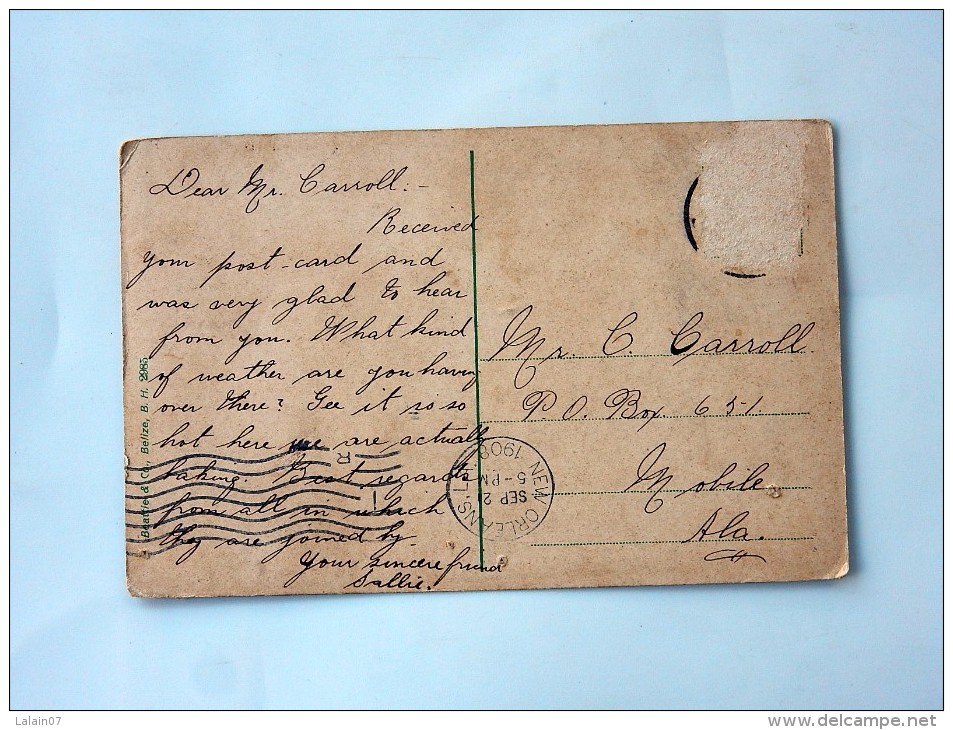 Dear Mr. Carroll:-
Received
your post-card and
was very glad to hear
from you. What kind
of weather are you having
over there? Gee it is so
hot here we are, actually
baking. Best regards
from all in which
they are joined by.
Your sincere friend
Sallie.
Mr. C. Carroll.
P. O. Box. 651.
Mobile
Ala.
NEW ORLEANS, LA.
SEP 2
5-PM
1908
R
Beattie & Co., Belize, B. H. 2985
Lalain07
http://www.delcampe.net